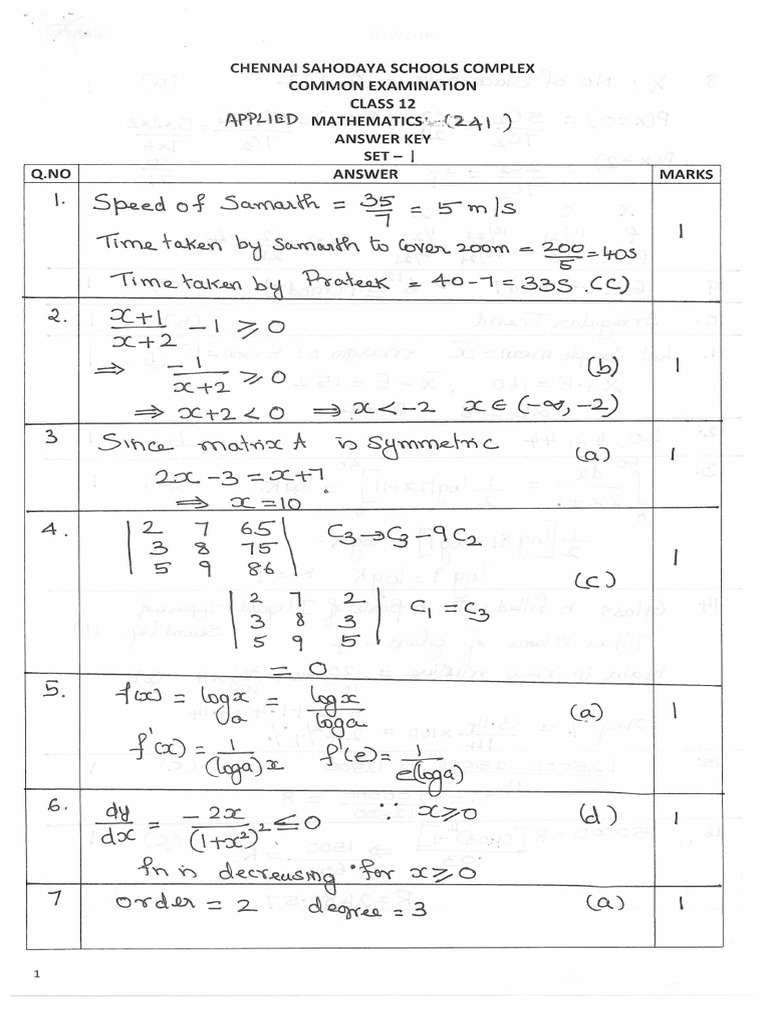 CHENNAI SAHODAYA SCHOOLS COMPLEX
COMMON EXAMINATION
CLASS 12
APPLIED MATHEMATICS - (241)
ANSWER KEY
SET – 1
Q.NO ANSWER MARKS
1. Speed of Samarth = 35/7 = 5 m/s
Time taken by Samarth to cover 200m = 200/5 = 40s
1
Time taken by Prateek = 40-7 = 33S. (C)
2. x+1/x+2 - 1 ≥ 0
⇒ -1/x+2 ≥ 0 (b) 1
⇒ x+2 < 0 ⇒ x < -2 x ∈ (-∞, -2)
3 Since matrix A is symmetric (a) 1
2x - 3 = x+7.
⇒ x = 10
4. | 2 7 65 | C3 → C3 - 9C2
| 3 8 75 |
| 5 9 86 | 1
(c)
| 2 7 2 | C1 = C3
| 3 8 3 |
| 5 9 5 |
= 0
5. f(x) = log_a x = log x/log a (a) 1
f'(x) = 1/(log a) x f'(e) = 1/e(log a)
6. dy/dx = -2x/(1+x²)² ≤ 0 ∵ x ≥ 0 (d) 1
fn is decreasing for x ≥ 0
7 order = 2 degree = 3 (a) 1
1